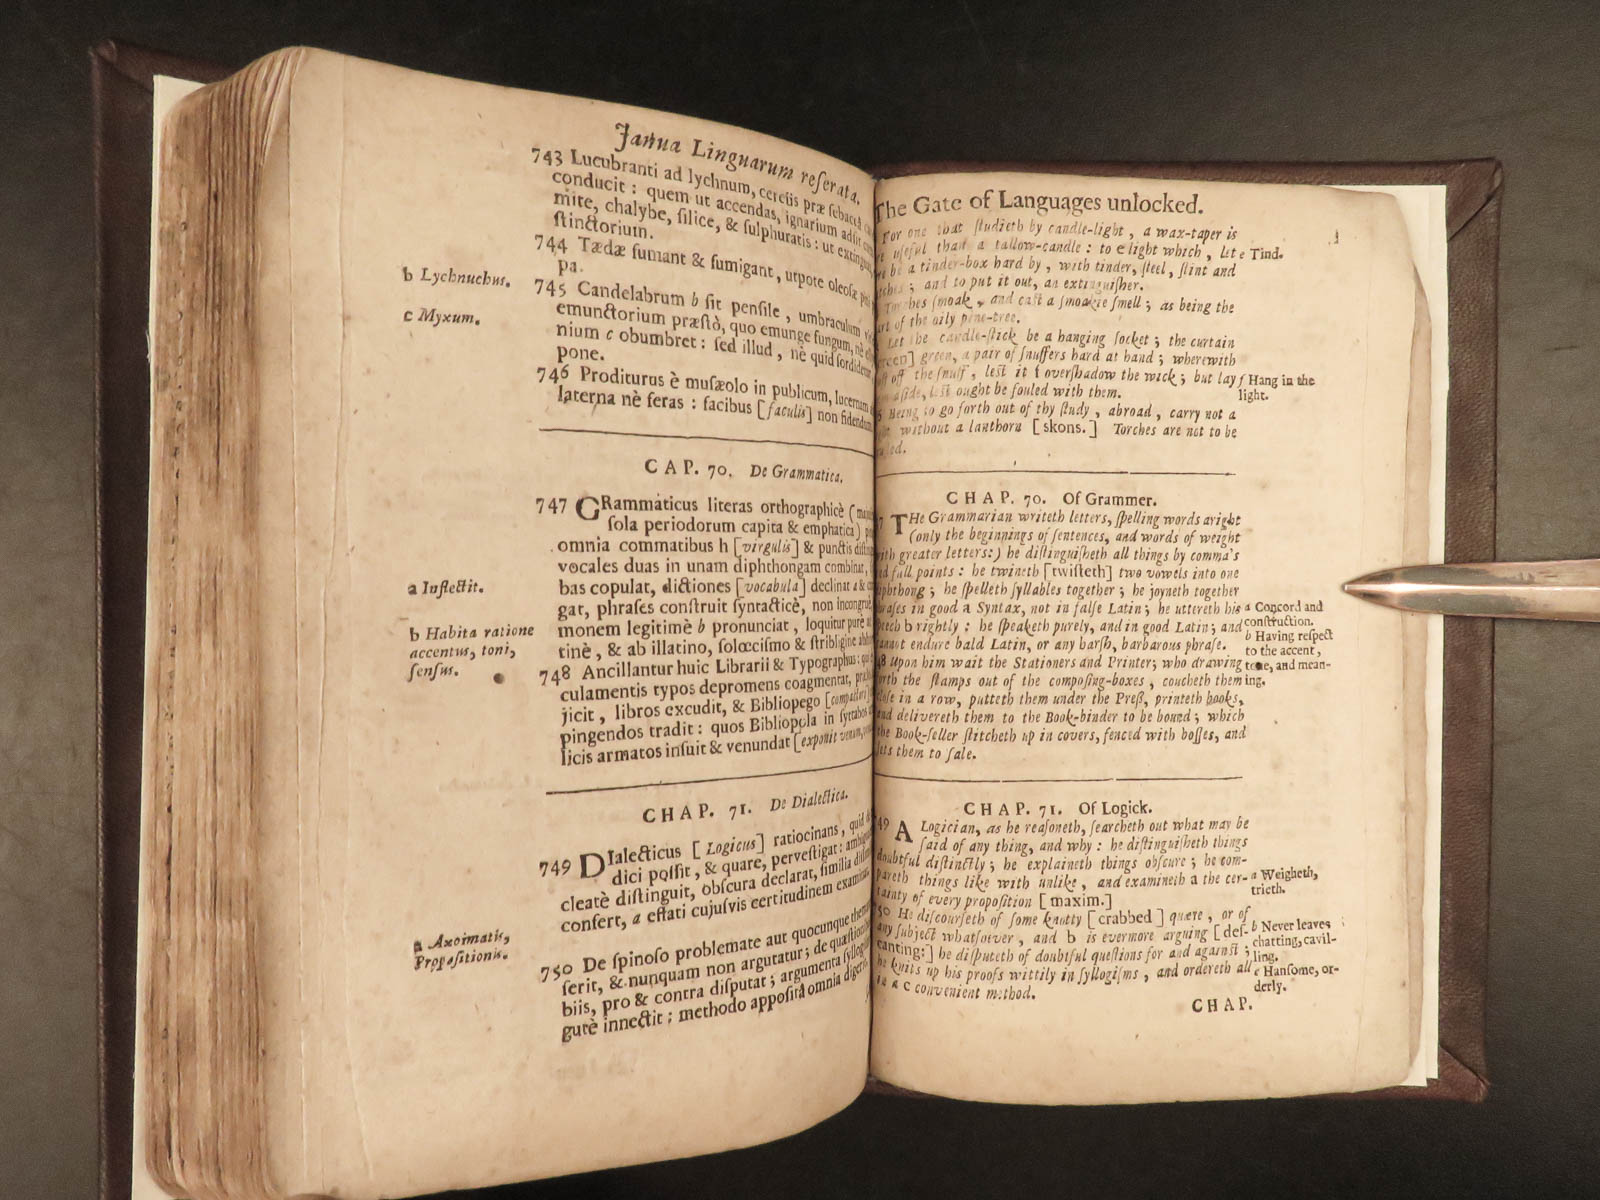 Janua Linguarum reſerata.
743 Lucubranti ad lychnum, cereus præ ſebaceâ
conducit : quem ut accendas, ignarium adſit
mite, chalybe, ſilice, & ſulphuratis : ut extinguas,
ſtinctorium.
744 Tædæ fumant & fumigant, utpote oleoſæ
pa.
b Lychnuchus.
745 Candelabrum b ſit penſile, umbraculum
c Myxum.
emunctorium præſtò, quo emunge fungum, nè
nium c obumbret : ſed illud, nè quid ſordidetur
pone.
746 Proditurus è muſæolo in publicum, lucernam
laterna nè feras : facibus [faculis] non fidendum.
CAP. 70. De Grammatica.
747 GRammaticus literas orthographicè
ſola periodorum capita & emphatica)
omnia commatibus h [virgulis] & punctis
vocales duas in unam diphthongam combinat,
a Inflectit.
bas copulat, dictiones [vocabula] declinat a &
gat, phraſes conſtruit ſyntacticè, non incongruè,
b Habita ratione
accentus, toni,
ſenſus.
monem legitimè b pronunciat, loquitur purè
tinè, & ab illatino, ſolœciſmo & ſtribligine
748 Ancillantur huic Librarii & Typographus :
culamentis typos depromens coagmentat,
jicit, libros excudit, & Bibliopego [compactori]
pingendos tradit : quos Bibliopola in
licis armatos inſuit & venundat [exponit
CHAP. 71. De Dialectica.
749 DIalecticus [Logicus] ratiocinans, quid
dici poſſit, & quare, perveſtigat :
cleatè diſtinguit, obſcura declarat, ſimilia
confert, a effati cujuſvis certitudinem
a Axoimatis,
Propoſitionis.
750 De ſpinoſo problemate aut quocunque
ſerit, & nunquam non argutatur ; de
biis, pro & contra diſputat ; argumenta
gutè innectit : methodo appoſitâ omnia digerit.
The Gate of Languages unlocked.
For one that ſtudieth by candle-light, a wax-taper is
uſeful than a tallow-candle : to e light which, let
e Tind.
be a tinder-box hard by, with tinder, ſteel, flint and
; and to put it out, an extinguiſher.
Torches ſmoak, and caſt a ſmoakie ſmell ; as being the
of the oily pine-tree.
Let the candle-ſtick be a hanging ſocket ; the curtain
green, a pair of ſnuffers hard at hand ; wherewith
off the ſnuff, leſt it f overſhadow the wick ; but lay
f Hang in the
light.
aſide, leſt ought be fouled with them.
Being to go forth out of thy ſtudy, abroad, carry not a
without a lanthorn [skons.] Torches are not to be
CHAP. 70. Of Grammer.
THe Grammarian writeth letters, ſpelling words aright
(only the beginnings of ſentences, and words of weight
with greater letters:) he diſtinguiſheth all things by comma's
full points : he twineth [twiſteth] two vowels into one
; he ſpelleth ſyllables together ; he joyneth together
in good a Syntax, not in falſe Latin ; he uttereth his
a Concord and
conſtruction.
b rightly : he ſpeaketh purely, and in good Latin ; and
cannot endure bald Latin, or any harſh, barbarous phraſe.
b Having reſpect
to the accent,
tone, and mean-
ing.
Upon him wait the Stationers and Printer ; who drawing
the ſtamps out of the compoſing-boxes, coucheth them
cloſe in a row, putteth them under the Preſs, printeth books,
and delivereth them to the Book-binder to be bound ; which
the Book-ſeller ſtitcheth up in covers, fenced with boſſes, and
ſets them to ſale.
CHAP. 71. Of Logick.
A Logician, as he reaſoneth, ſearcheth out what may be
ſaid of any thing, and why : he diſtinguiſheth things
doubtful diſtinctly ; he explaineth things obſcure ; he com-
pareth things like with unlike, and examineth a the cer-
a Weigheth,
trieth.
tainty of every propoſition [maxim.]
He diſcourſeth of ſome knotty [crabbed] quære, or of
any ſubject whatſoever, and b is evermore arguing [deſ-
b Never leaves
chatting, cavil-
ling.
canting:] he diſputeth of doubtful queſtions for and againſt ;
he knits up his proofs wittily in ſyllogiſms, and ordereth all
c Hanſome, or-
derly.
in a c convenient method.
CHAP.